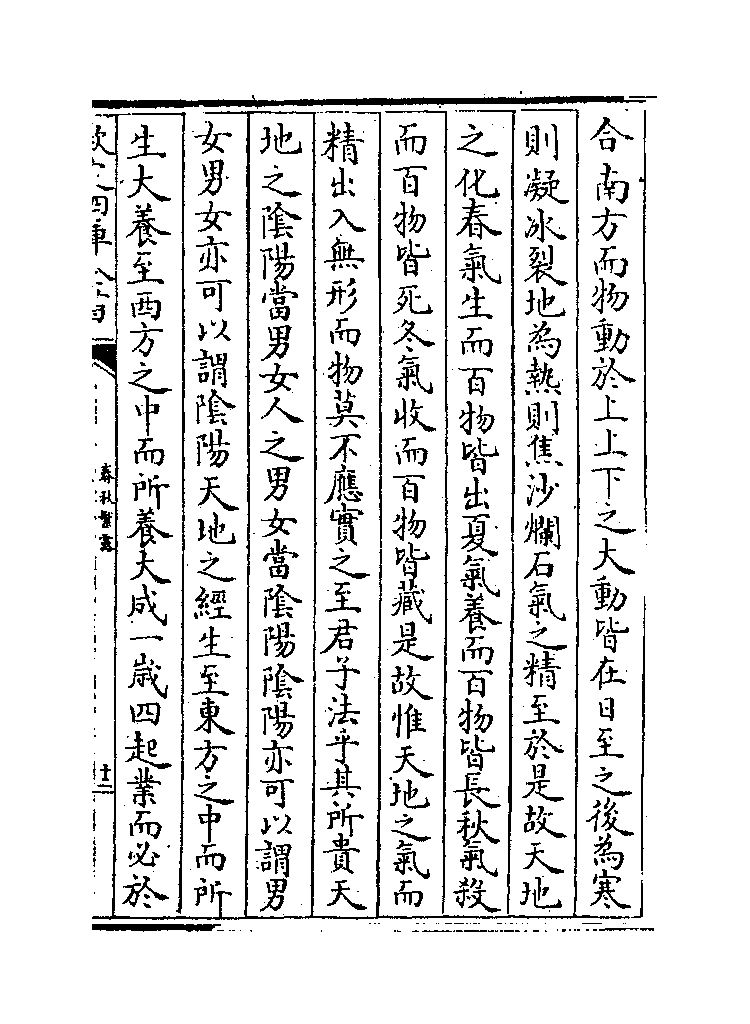 合南方而物動於上上下之大動皆在日至之後為寒
則凝冰裂地為熱則焦沙爛石氣之精至於是故天地
之化春氣生而百物皆出夏氣養而百物皆長秋氣殺
而百物皆死冬氣收而百物皆藏是故惟天地之氣而
精出入無形而物莫不應實之至君子法乎其所貴天
地之陰陽當男女人之男女當陰陽陰陽亦可以謂男
女男女亦可以謂陰陽天地之經生至東方之中而所
生大養至西方之中而所養大成一歳四起業而必於
欽定四庫全書
春秋繁露
十二